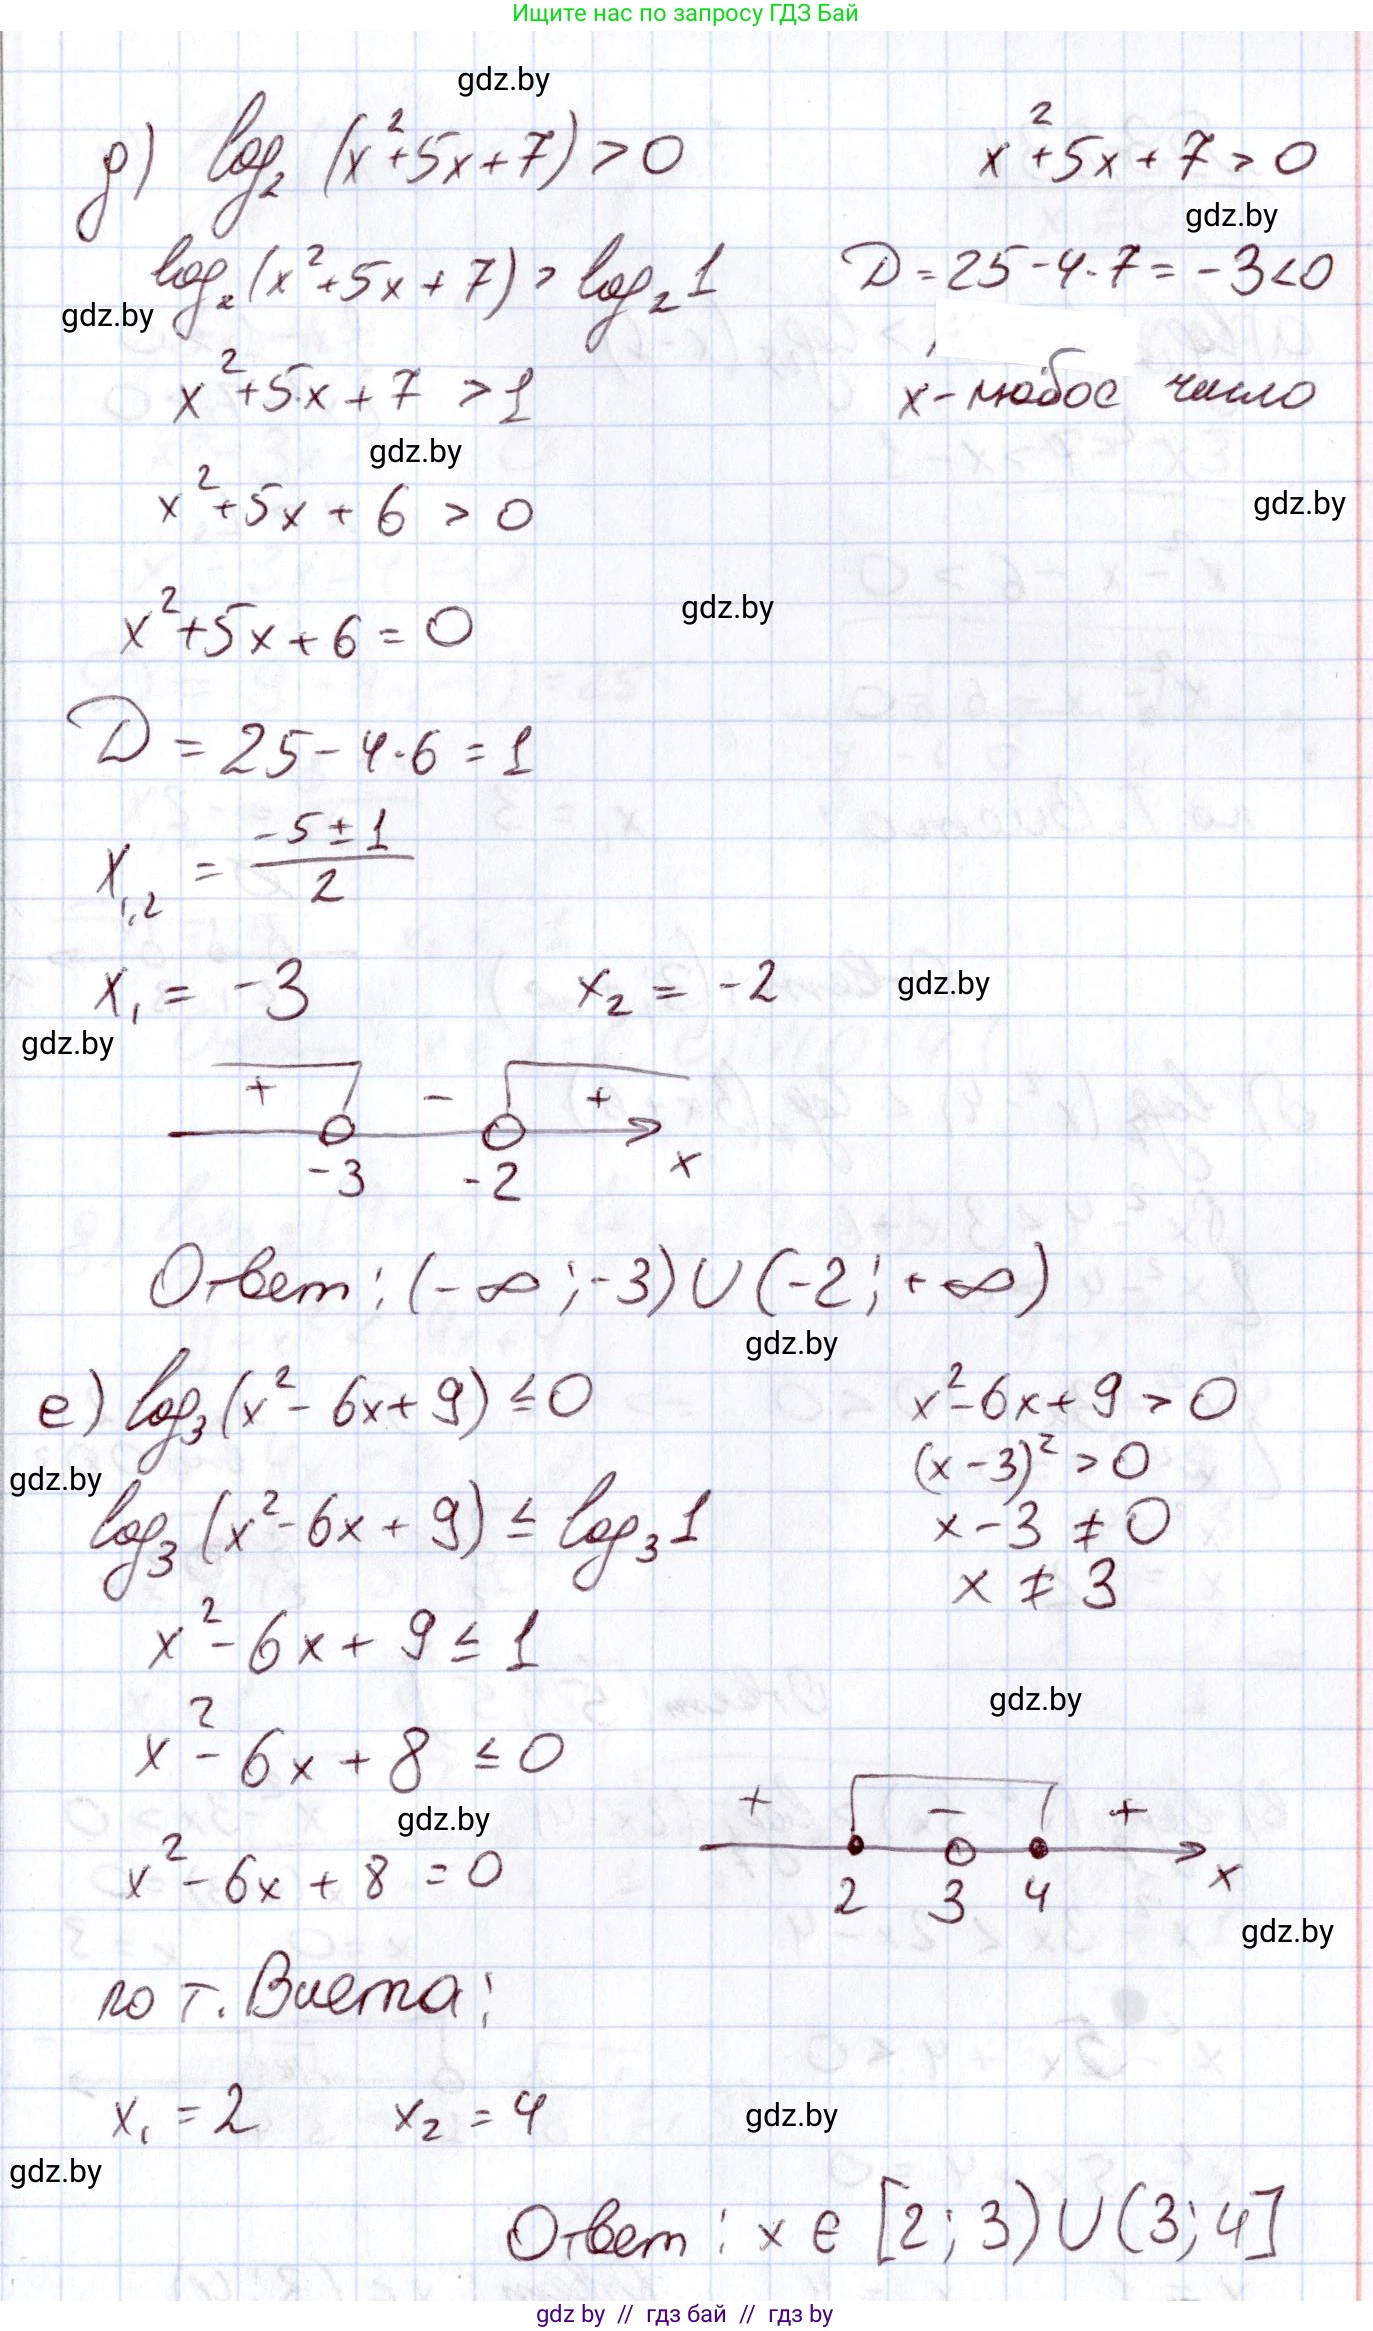 Ищите нас по запросу ГДЗ Бай
gdz.by
д) log₂ (x²+5x+7) > 0
x²+5x+7 > 0
gdz.by
log₂ (x²+5x+7) > log₂ 1
D = 25-4·7 = -3 < 0
gdz.by
x²+5x+7 > 1
x - любое число
gdz.by
x²+5x+6 > 0
gdz.by
x²+5x+6 = 0
gdz.by
D = 25-4·6 = 1
x₁,₂ = (-5±1)/2
x₁ = -3 x₂ = -2
gdz.by
gdz.by
+ - +
-3 -2 x
Ответ: (-∞; -3) ∪ (-2; +∞)
gdz.by
е) log₃ (x²-6x+9) ≤ 0
x²-6x+9 > 0
(x-3)² > 0
gdz.by
log₃ (x²-6x+9) ≤ log₃ 1
x-3 ≠ 0
x ≠ 3
x²-6x+9 ≤ 1
gdz.by
x²-6x+8 ≤ 0
+ - +
gdz.by
x²-6x+8 = 0
2 3 4 x
gdz.by
по т. Виета:
x₁ = 2 x₂ = 4
gdz.by
gdz.by
Ответ: x ∈ [2; 3) ∪ (3; 4]
gdz by // гдз бай // гдз by